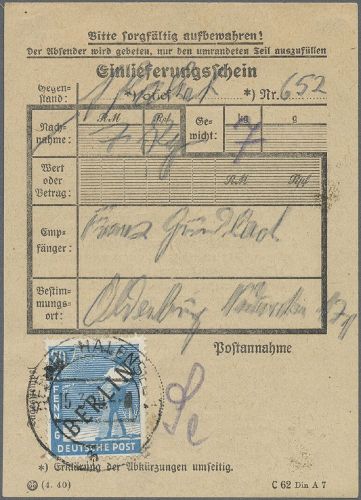 Bitte sorgfältig aufbewahren!
Der Absender wird gebeten, nur den umrandeten Teil auszufüllen
Einlieferungsschein
Gegenstand: *) *) Nr. 652
Nachnahme: RM Rpf Gewicht: kg g
7
Wert oder Betrag: RM Rpf
Empfänger: Franz Gundlach
Bestimmungsort: Oldenburg
Postannahme
HALENSEE
BERLIN
DEUTSCHE POST
*) Erklärung der Abkürzungen umseitig.
(4. 40) C 62 Din A 7